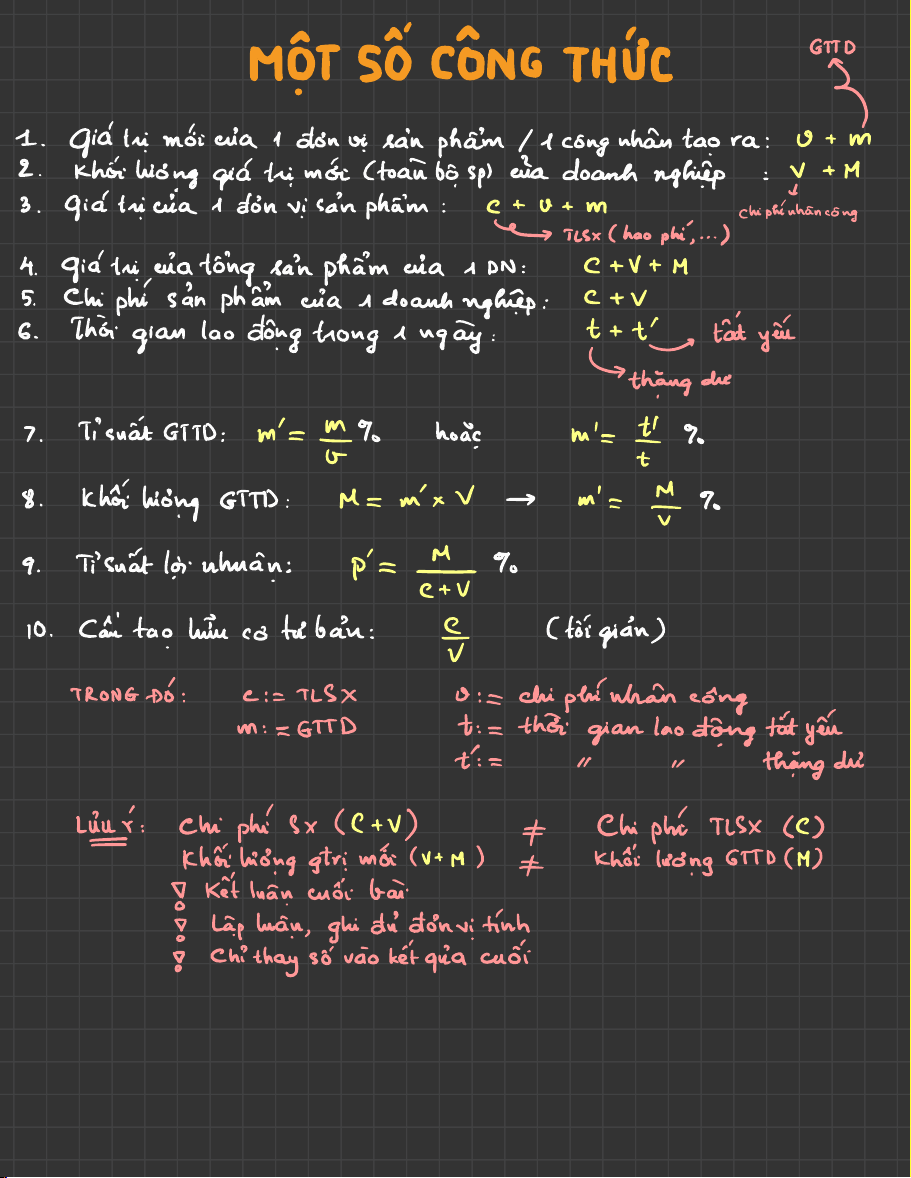 MỘT SỐ CÔNG THỨC
GTTD
1. Giá trị mới của 1 đơn vị sản phẩm / 1 công nhân tạo ra: v + m
2. Khối lượng giá trị mới (toàn bộ sp) của doanh nghiệp : V + M
chi phí nhân công
3. Giá trị của 1 đơn vị sản phẩm : c + v + m
TLSX (hao phí,...)
4. Giá trị của tổng sản phẩm của 1 DN: C + V + M
5. Chi phí sản phẩm của 1 doanh nghiệp: C + V
6. Thời gian lao động trong 1 ngày: t + t' → tất yếu
thặng dư
7. Tỉ suất GTTD: m' = m/v % hoặc m' = t'/t %
8. Khối lượng GTTD: M = m' x V → m' = M/V %
9. Tỉ suất lợi nhuận: p' = M/(C+V) %
10. Cấu tạo hữu cơ tư bản: C/V (tối giản)
TRONG ĐÓ: c:= TLSX v:= chi phí nhân công
m:= GTTD t:= thời gian lao động tất yếu
t':= " " thặng dư
Lưu ý: Chi phí SX (C+V) ≠ Chi phí TLSX (C)
Khối lượng gtrị mới (V+M) ≠ Khối lượng GTTD (M)
! Kết luận cuối bài
! Lập luận, ghi đủ đơn vị tính
! Chỉ thay số vào kết qủa cuối